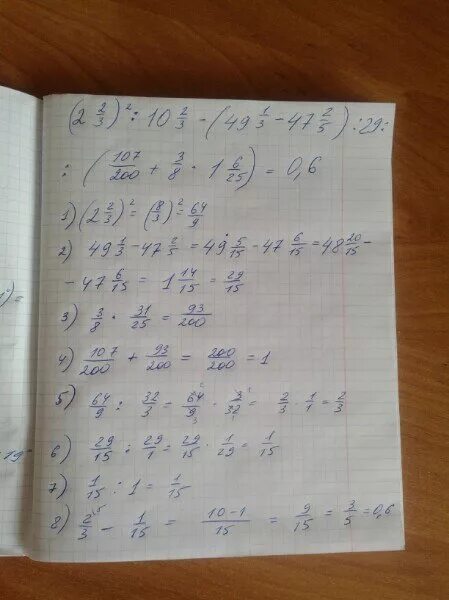 (2 2/3)² : 10 2/3 - (49 1/3 - 47 2/5) : 29 :
: (107/200 + 3/8 · 1 6/25) = 0,6
1) (2 2/3)² = (8/3)² = 64/9
2) 49 1/3 - 47 2/5 = 49 5/15 - 47 6/15 = 48 20/15 -
- 47 6/15 = 1 14/15 = 29/15
3) 3/8 · 31/25 = 93/200
4) 107/200 + 93/200 = 200/200 = 1
5) 64/9 : 32/3 = 64/9 · 3/32 = 2/3 · 1/1 = 2/3
6) 29/15 : 29/1 = 29/15 · 1/29 = 1/15
7) 1/15 : 1 = 1/15
8) 2/3 - 1/15 = 10-1/15 = 9/15 = 3/5 = 0,6